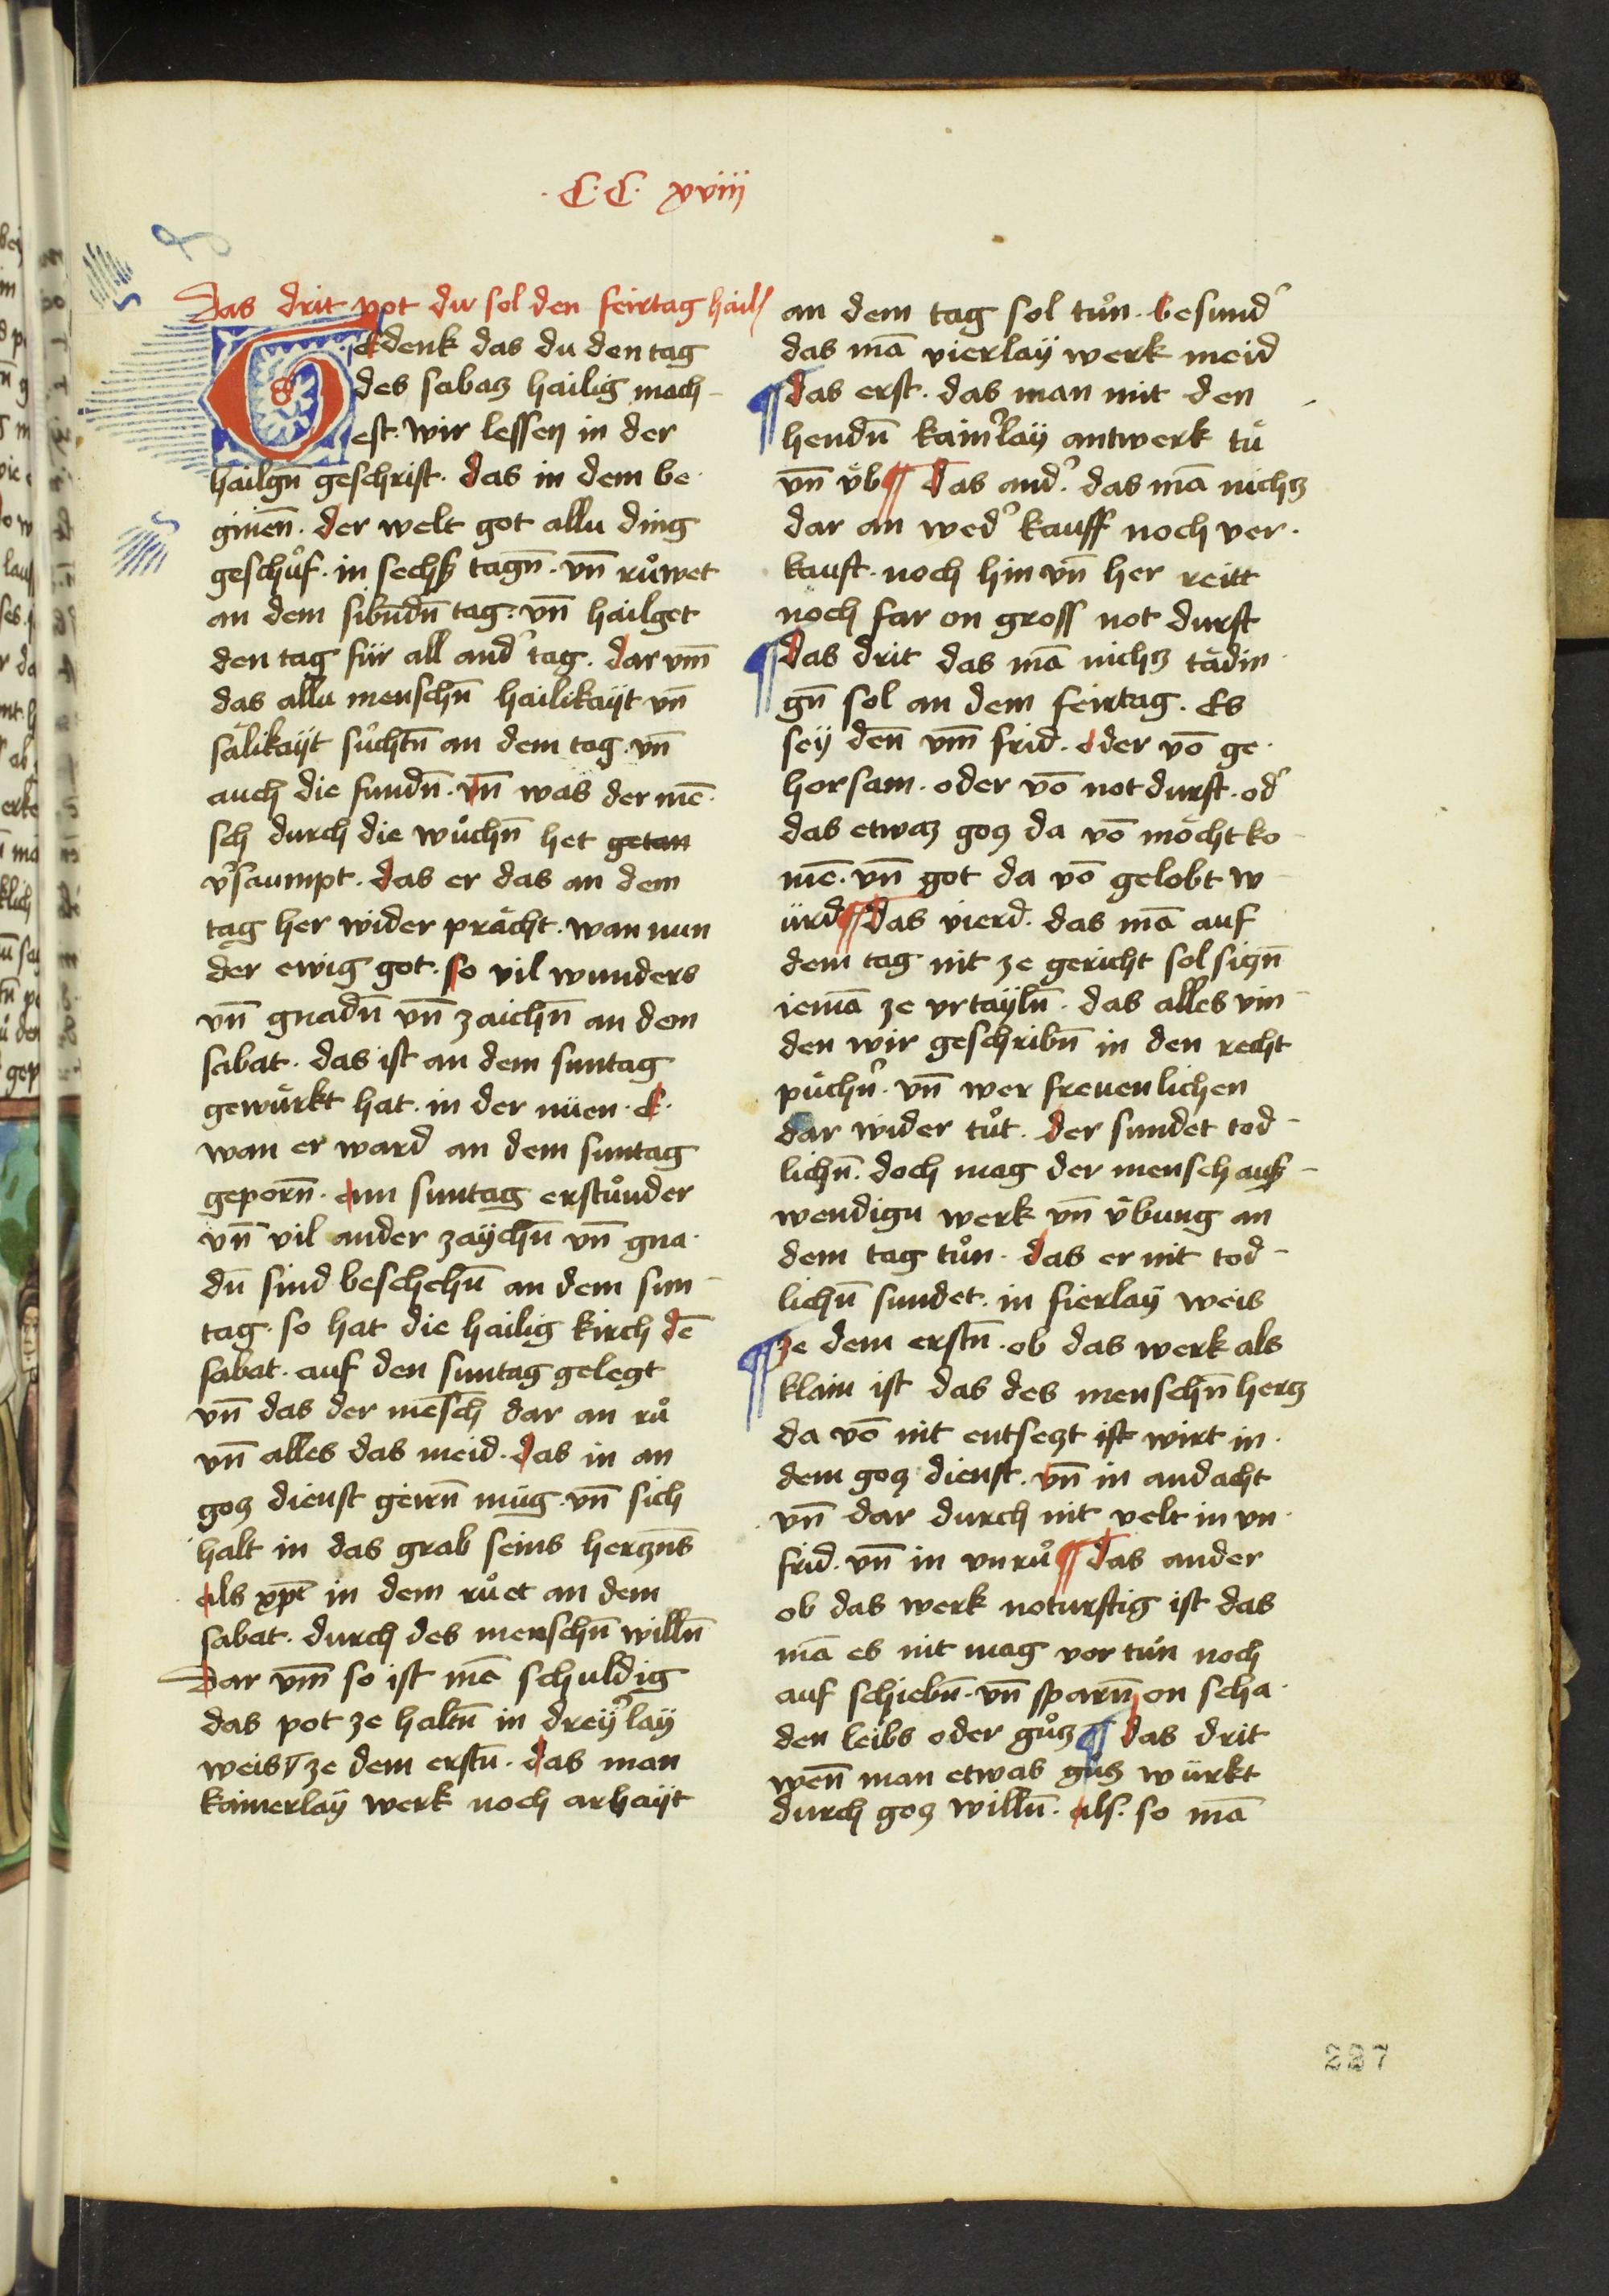 ·C·C· xviij
Das drit pot du sol den feirtag hail
Gedenk das du den tag
des sabaz hailig mach-
est. wir lessen in der
hailgn̄ geschrift. das in dem be-
ginen̄. der welt got allu ding
geschůf. in sechs tagn̄. vn̄ růwet
an dem sibn̄dn̄ tag: vn̄ hailget
den tag für all and' tag. dar vm̄
das allu menschn̄ hailikayt vn̄
sälikayt sůchtn̄ an dem tag. vn̄
auch die fundn̄. vn̄ was der mē-
sch durch die wůchn̄ het getan
v'saumpt. das er das an dem
tag her wider prächt. wan nun
der ewig got. so vil wunders
vn̄ gnadn̄ vn̄ zaichn̄ an dem
sabat. das ist an dem suntag
gewürkt hat. in der nüen. E.
wan er ward an dem suntag
geporn̄. ann suntag erstůnder
vn̄ vil ander zaychn̄ vn̄ gna-
dn̄ sind beschehn̄ an dem sun-
tag. so hat die hailig kirch dē
sabat. auf den suntag gelegt
vn̄ das der mēsch dar an rů
vn̄ alles das meid. das in an
goz dienst geirn̄ müg. vn̄ sich
halt in das grab seins herzn̄s
als xp̄t in dem růet an dem
sabat. durch des menschn̄ willn̄
Dar vm̄ so ist mē schuldig
das pot ze haltn̄ in drey'lay
weis ¶ ze dem erstn̄. das man
kainerlaÿ werk noch arbayt
an dem tag sol tůn. besund'
das mā vierlaÿ werk meid
¶ das erst. das man mit den
hendn̄ kain'laÿ antwerk tü
vn̄ üb ¶ Das and'. das mā nichz
dar an wed' kauff noch ver-
kauft. noch hin vn̄ her reitt
noch far on gross not durft
¶ das drit das mā nichz tädin-
gn̄ sol an dem feirtag. Es
seÿ den̄ vm̄ frid. oder vō ge-
horsam. oder vō not durft. od'
das etwaz goz da vō möcht ko-
mē. vn̄ got da vō gelobt w-
ürd ¶ Das vierd. das mā auf
dem tag nit ze gericht sol sizn̄
iemā ze vrtaÿln̄. das alles vin-
den wir geschribn̄ in den recht
püchn̄'. vn̄ wer freuenlichen
dar wider tůt. der sundet tod-
lichn̄. doch mag der mensch aus-
wendign werk vn̄ übung an
dem tag tůn. das er nit tod-
lichn̄ sundet. in fierlaÿ weis
¶ ze dem erstn̄. ob das werk als
klain ist das des menschn̄ herz
da vō nit entsezt ist wirt in-
dem goz dienst. vn̄ in andacht
vn̄ dar durch nit velt in vn-
frid. vn̄ in vnrů ¶ Das ander
ob das werk noturftig ist das
mā es nit mag vor tůn noch
auf schiebn̄. vn̄ sparn̄ on scha-
den leibs oder gůz ¶ das drit
wen̄ man etwas gůz würkt
durch goz willn̄. als. so mā
227